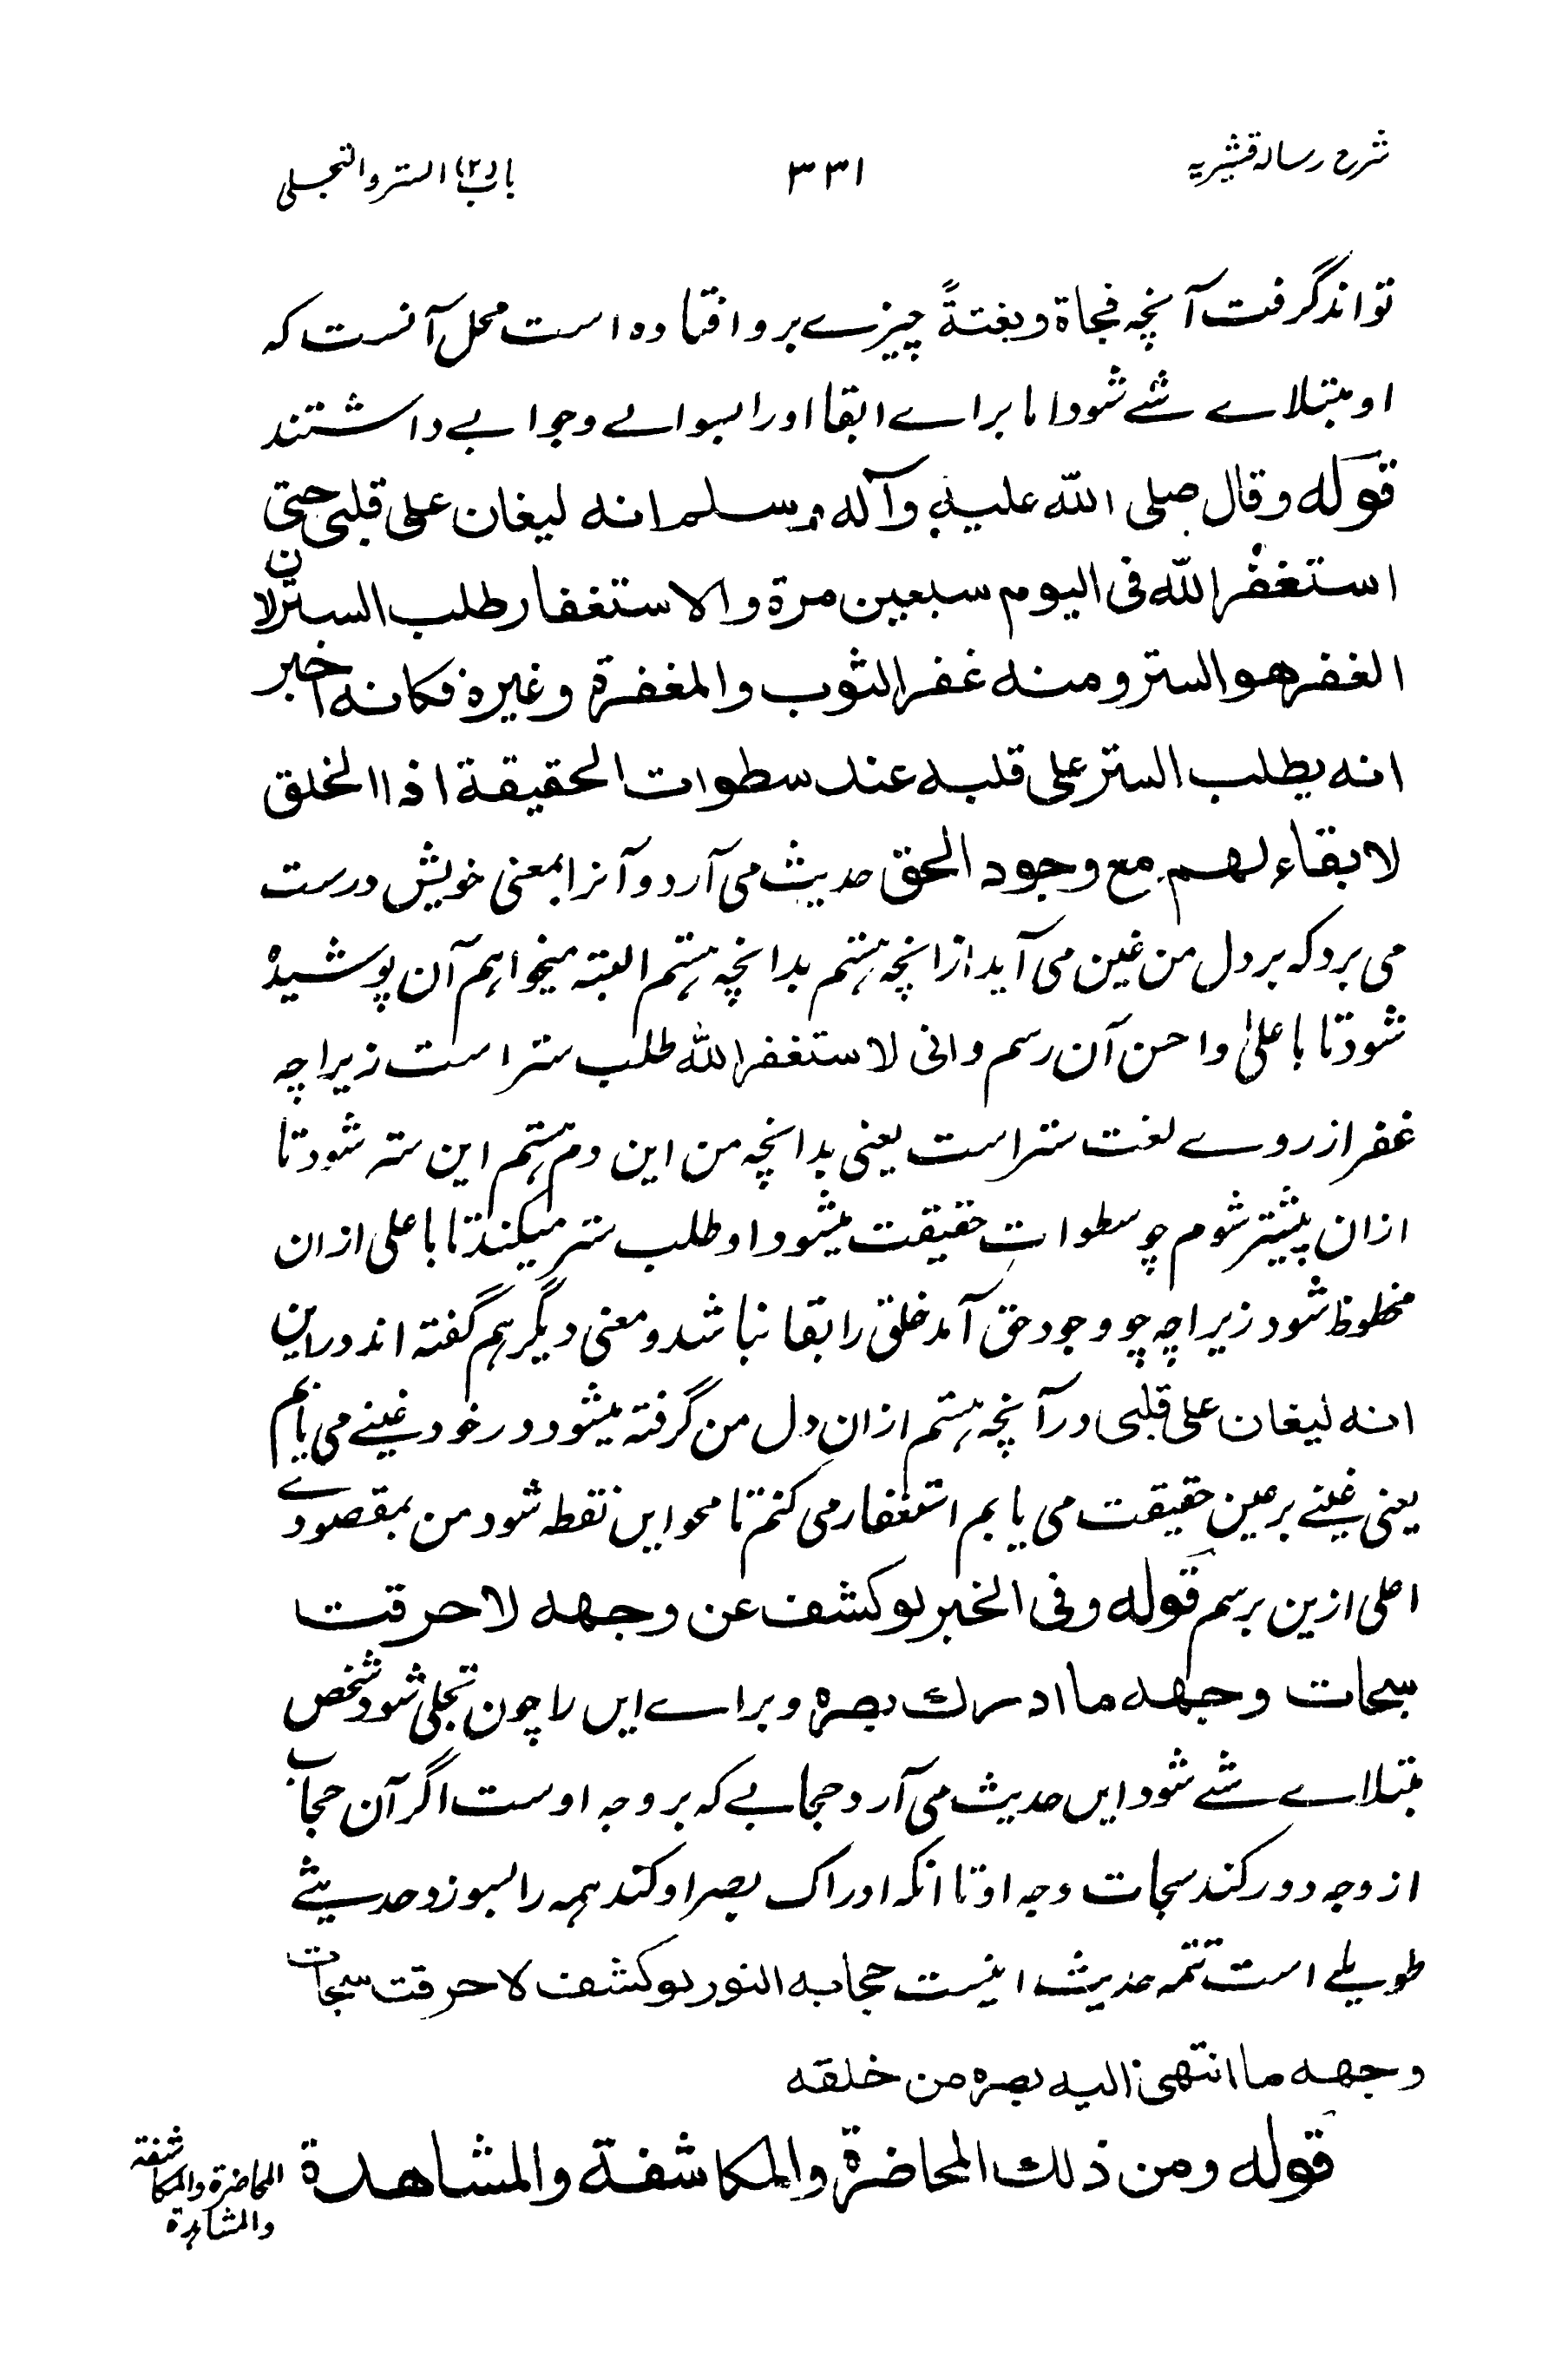 شرح رسالہ قشیریہ
۳۳۱
باب (۲) الستر والتجلی
تواند گرفت آنچہ فجاة و بغتةً چیزے برو افتادہ است محل آنست کہ
او مبتلاے شے شود اما براے ابقا او را بسوالے و جوابے داشتند
قوله وقال صلی الله علیه وآله وسلم انه لیغان علی قلبی حتی
استغفر الله فی الیوم سبعین مرة والاستغفار طلب الستر لان
الغفر هو الستر ومنه غفر الثوب والمغفرة وغیره فكانه اخبر
انه یطلب الستر علی قلبه عند سطوات الحقیقة اذا الخلق
لا بقاء لهم مع وجود الحق حدیث می آرد و آنرا بمعنی خویش درست
می برد کہ بر دل من غین می آید ازانچہ ہستم بدانچہ ہستم البتہ میخواہم آن پوشیدہ
شود تا با علیٰ و احسن آن رسم وانی لاستغفر الله طلب ستر است زیراچہ
غفر از روے لغت ستر است یعنی بدانچہ من این دم ہستم این ستر شود تا
ازان پیشتر شوم چو سطواتِ حقیقت میشود او طلب ستر میکند تا با علی ازان
مخطوظ شود زیراچہ چو وجود حق آمد خلق را بقا نباشد و معنی دیگر ہم گفتہ اند درین
انه لیغان علی قلبی در آنچہ ہستم ازانِ دل من گرفتہ میشود در خود غینے می یابم
یعنی غینے بر عین حقیقت می یابم استغفار می کنم تا محو ایں نقطہ شود من بمقصودے
اعلی ازین برسم قوله وفی الخبر لو كشف عن وجهه لاحرقت
سبحات وجهه ما ادرك بصره و براے ایں را چون تجلی شود شخص
مبتلاے شے شود ایں حدیث می آرد حجابے کہ بر وجہ اوست اگر آن حجاب
از وجہ دور کند سبحات وجہ او تا انکہ ادراک بصر او کند ہمہ را بسوزد حدیثے
طویلے است تتمہ حدیث اینست حجابه النور لو كشف لاحرقت سبحات
وجهه ما انتهی الیه بصره من خلقه
قوله ومن ذلك المحاضرة والمكاشفة والمشاهدة
المحاضرة والمکاشفة
والمشاہدة